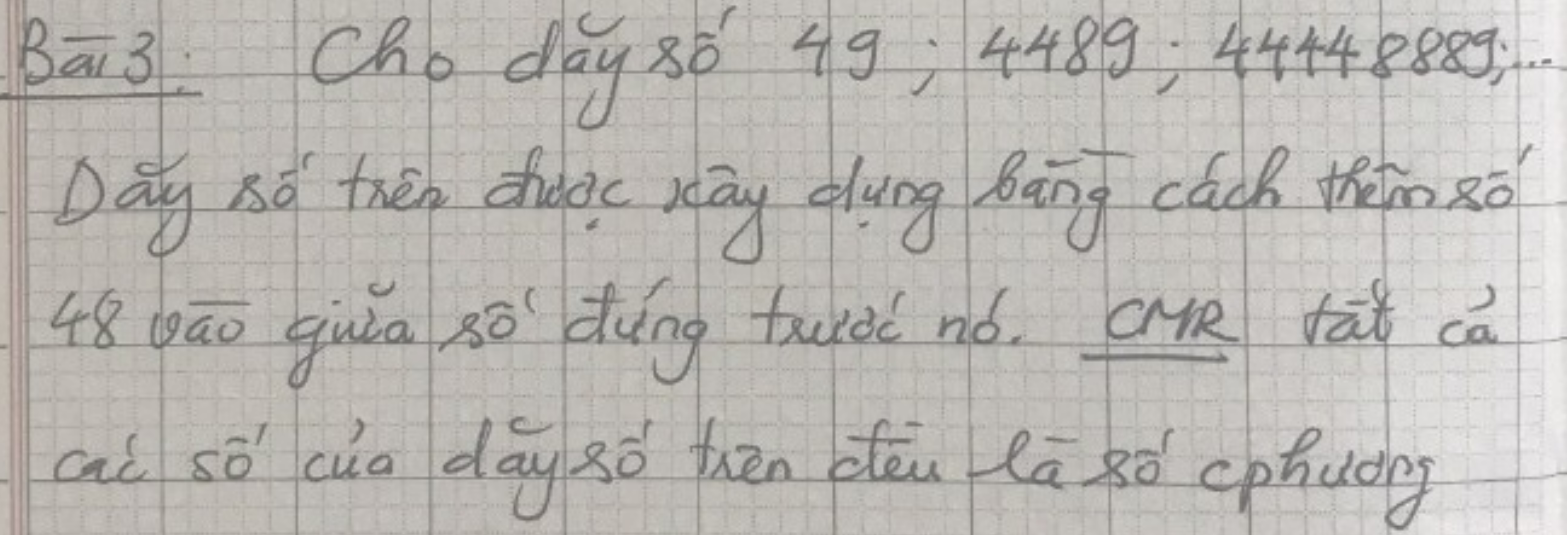 Bài 3: Cho dãy số 49; 4489; 44448889;...
Dãy số trên được xây dựng bằng cách thêm số
48 vào giữa số đứng trước nó. CMR tất cả
các số của dãy số trên đều là số cphương